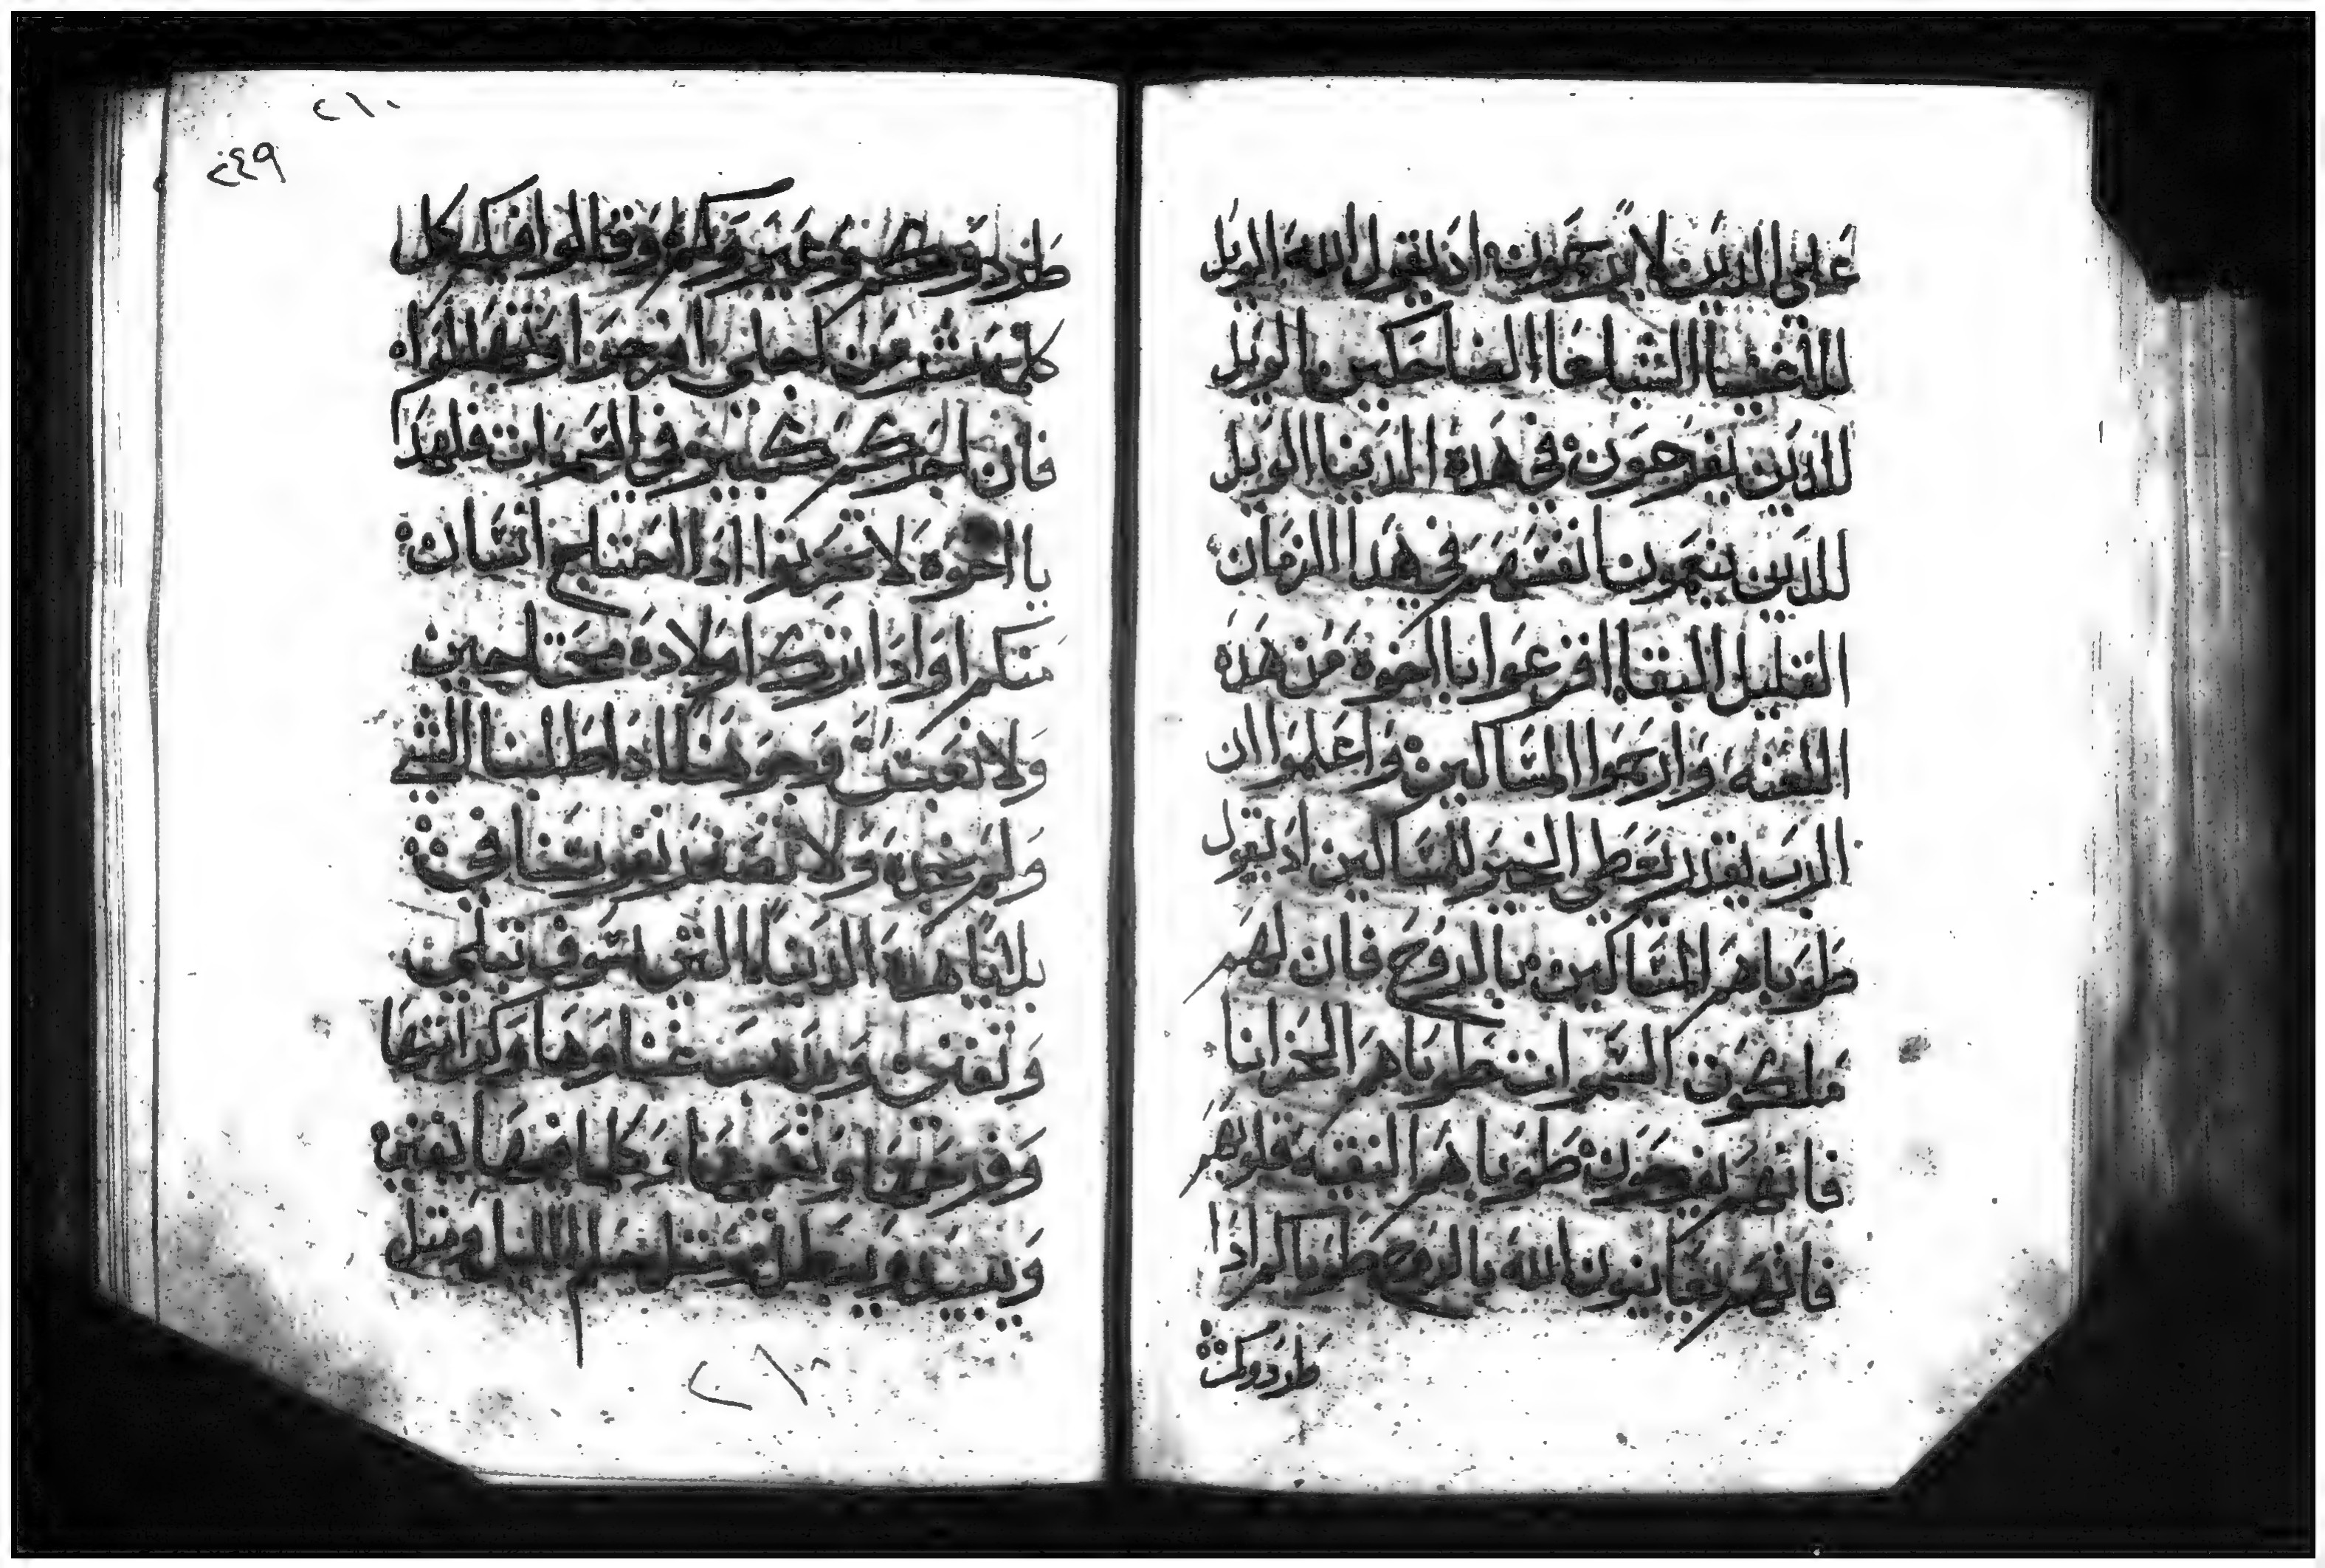 على الدين لا يرحمون اد يقول الله الويل
للاغنيا الشباعا الضاحكين الويل
للدين يفرحون في هده الدنيا الويل
للدين ينعمون انفسهم في هدا الزمان
القليل البقا افزعوا يا اخوه من هده
اللعنه وارحموا المساكين واعلموا ان
الرب يقدر يعطي الخير للمساكين اد يقول
طوباهم المساكين بالروح فان لهم
ملكوت السموات طوباهم الحزانا
فانهم يفرحون طوباهم النقيه قلوبهم
فانهم يعاينون الله بالروح طوباكم ادا
طردوكم
٢١٠
٢٤٩
طردوكم وعيروكم وقالوا فيكم كل
كلمه شر من اجلي افرحوا وتهللوا
فان اجركم كبير في السموات فلهدا
يا اخوه لا تحزنوا ادا احتاج انسان
منكم او ادا ترك اولاده محتاجين
ولا نعتب وحوهنا ادا طلبنا الشي
ولم نجده ولا
بلايا هده الدنيا التي سوف تبلى
وتفنى ويدهب غناوها وكرامتها
وفرحها ونعيمها وكلما فيها يفنى
ويبيد ويبطل مثل حلم الليل ومثل
٢١٠